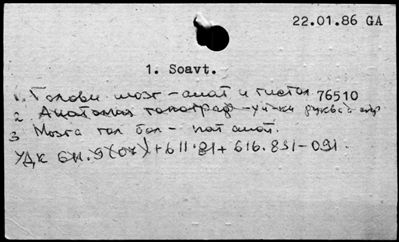 22.01.86 GA
1. Soavt.
1. Головн. мозг – анат и гистол 76510
2 Анатомия топограф – уч-ки
3 Мозга гол бол – пат анат.
УДК 611.9(07)+611.81+616.831-091.